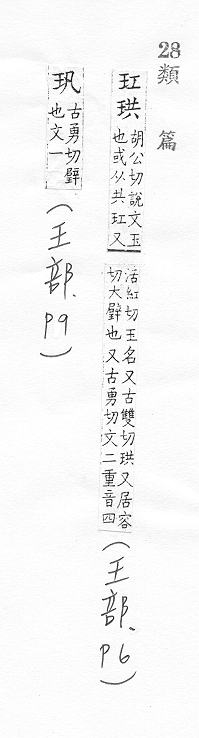 28類篇
玒珙 胡公切說文玉
也或从共玒又
活紅切玉名又古雙切珙又居容
切大璧也又古勇切文二重音四
(王部、P6)
㺬 古勇切璧
也文一
(王部、P9)